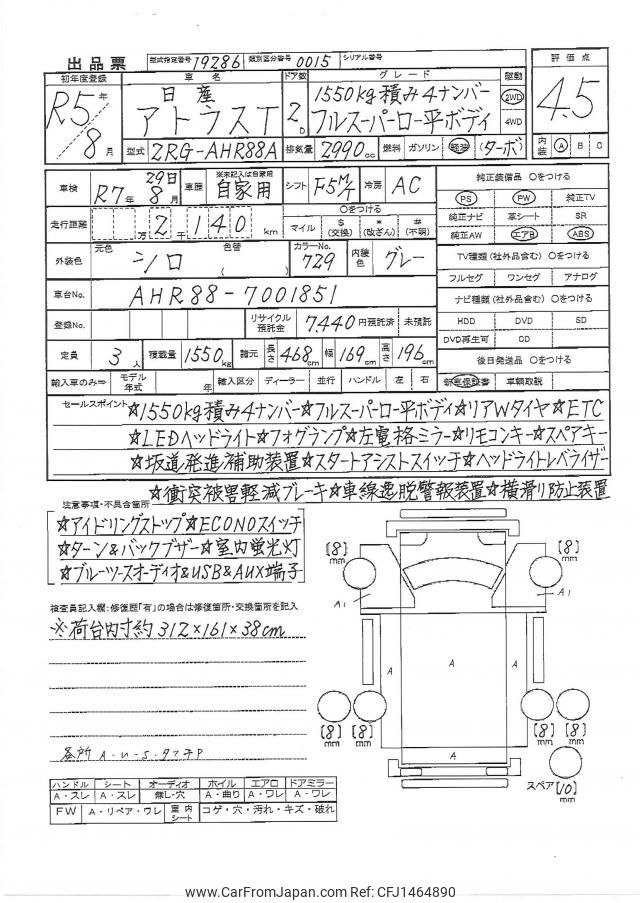 出品票
型式指定番号 19286 類別区分番号 0015 シリアル番号
初年度登録 車名 ドア数 グレード 駆動 評価点
R5年 8月
日産 アトラスT
2D
1550kg積み4ナンバー
フルスーパーロー平ボディ
2WD
4WD
4.5
型式 2RG-AHR88A 排気量 2990cc 燃料 ガソリン 軽油 (ターボ) 内装 A B C
車検 R7年 29日 8月 車歴 ※未記入は自家用 自家用 シフト F5M/T 冷房 AC
純正装備品 ○をつける
PS PW 純正TV
純正ナビ 革シート SR
純正AW エアB ABS
走行距離 万 2千 140 km
○をつける
マイル $(交換) *(改ざん) #(不明)
外装色 元色 シロ 色替 ( ) カラーNo. 729 内装色 グレー
TV種類(社外品含む) ○をつける
フルセグ ワンセグ アナログ
車台No. AHR88-7001851
ナビ種類(社外品含む) ○をつける
HDD DVD SD
DVD再生可 CD
登録No. リサイクル預託金 7,440円預託済 未預託
定員 3人 積載量 1550kg 諸元 長さ 468cm 幅 169cm 高さ 196cm
後日発送品 ○をつける
新車保証書 車輌取説
輸入車のみ⇒ モデル年式 年 輸入区分 ディーラー 並行 ハンドル 左 右
セールスポイント ☆1550kg積み4ナンバー☆フルスーパーロー平ボディ☆リアWタイヤ☆ETC
☆LEDヘッドライト☆フォグランプ☆左電格ミラー☆リモコンキー☆スペアキー
☆坂道発進補助装置☆スタートアシストスイッチ☆ヘッドライトレベライザー
☆衝突被害軽減ブレーキ☆車線逸脱警報装置☆横滑り防止装置
注意事項・不具合箇所
☆アイドリングストップ☆ECONOスイッチ
☆ターン&バックブザー☆室内蛍光灯
☆ブルーツースオーディオ&USB&AUX端子
検査員記入欄:修復歴「有」の場合は修復箇所・交換箇所を記入
※荷台内寸約312×161×38cm
[8]mm [8]mm
A1 A1
A A A
[8]mm [8]mm [8]mm [8]mm
A
スペア [10]mm
ハンドル シート オーディオ ホイル エアロ ドアミラー
A・スレ A・スレ 無し・穴 A・曲り A・ワレ A・ワレ
FW A・リペア・ワレ 室内シート コゲ・穴・汚れ・キズ・破れ
www.CarFromJapan.com Ref: CFJ1464890